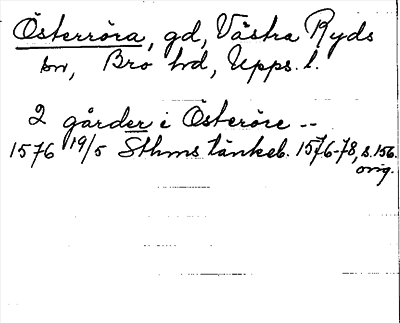 Österröra, gd, Västra Ryds
sn, Bro hd, Upps. l.
2 gårder i Österöre --
1576 19/5 Sthms tänkeb. 1576-78, s. 156.
orig.